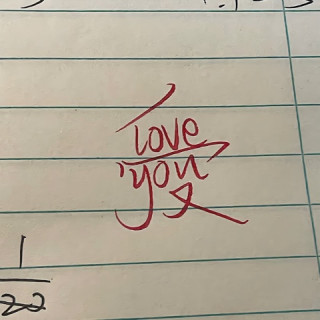 love
you
1
22